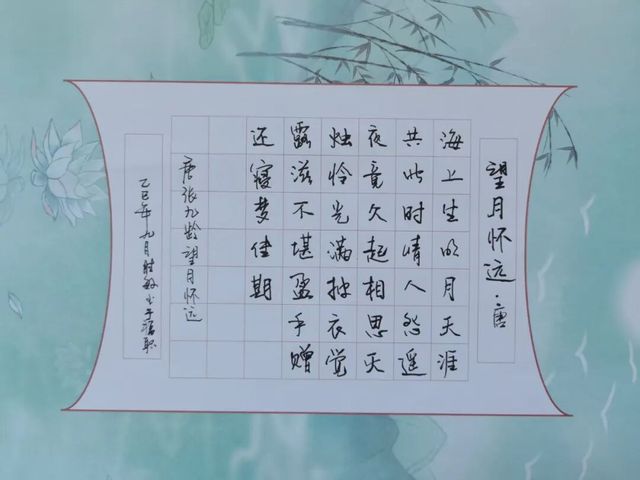 望月怀远·唐
海上生明月天涯
共此时情人怨遥
夜竟夕起相思灭
烛怜光满披衣觉
露滋不堪盈手赠
还寝梦佳期
唐张九龄望月怀远
乙巳年九月胜敏书于